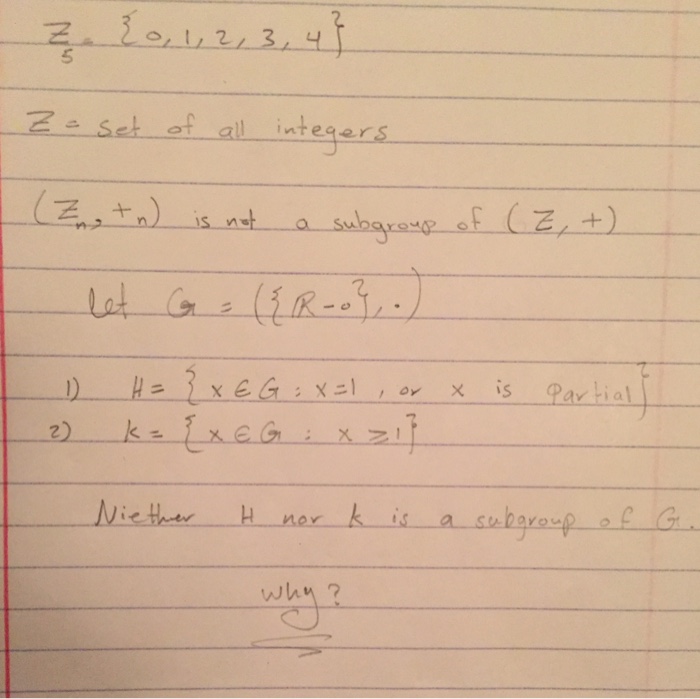 Z₅ = {0, 1, 2, 3, 4}
Z = set of all integers
(Zₙ, +ₙ) is not a subgroup of (Z, +)
let G = ({R-0}, ·)
1) H = {x ∈ G : x=1, or x is Partial}
2) k = {x ∈ G : x ≥ 1}
Niether H nor k is a subgroup of G.
why?